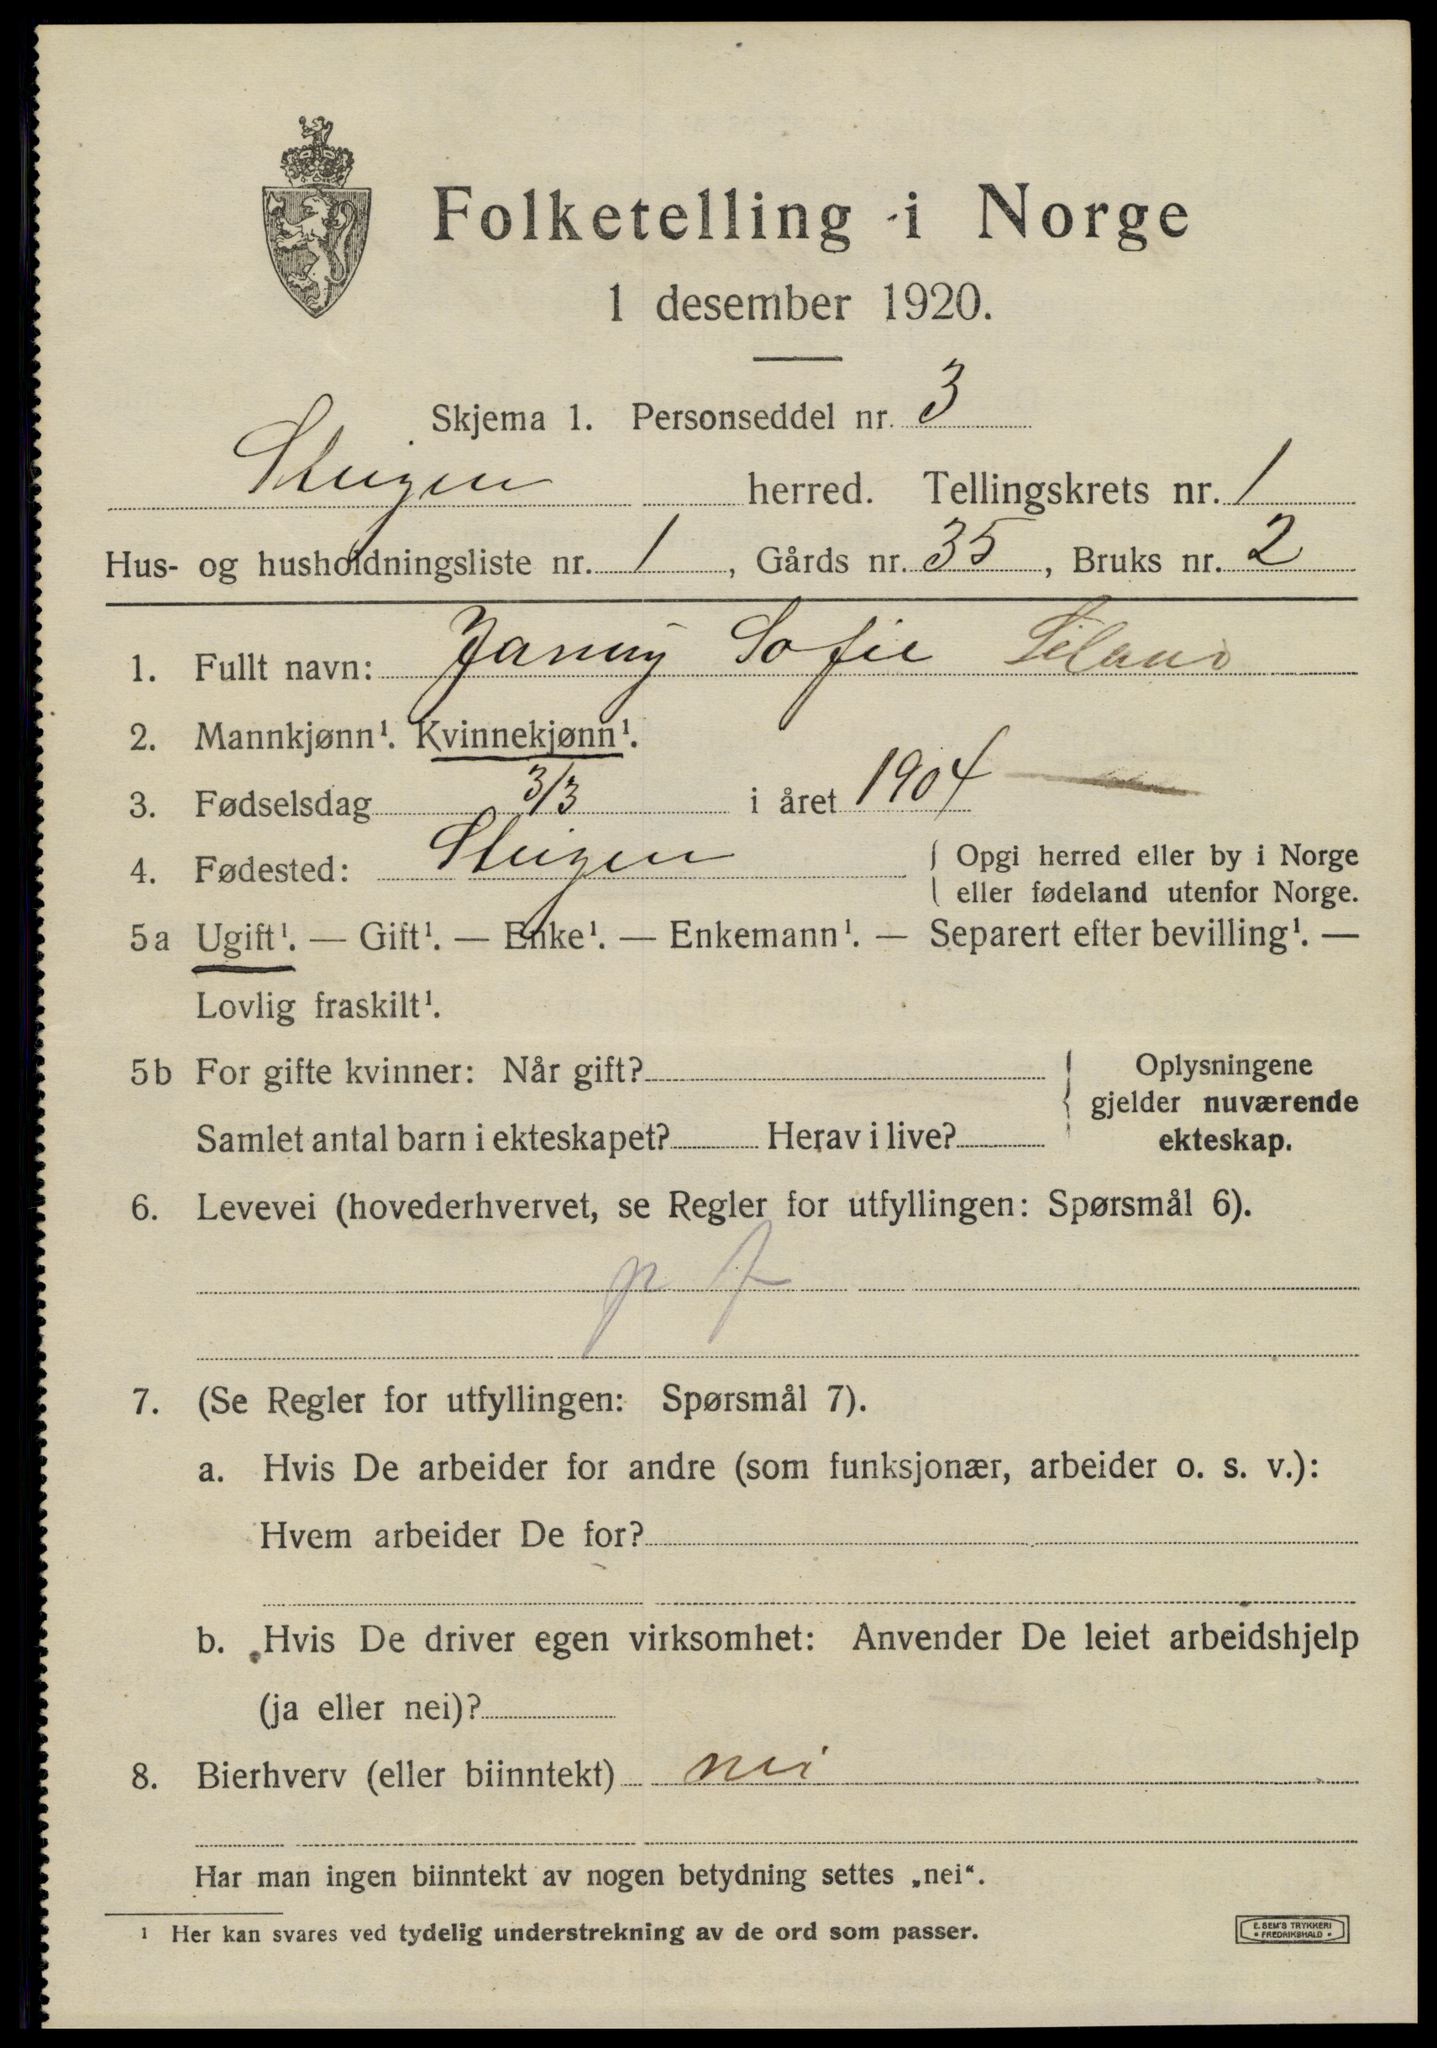 Folketelling i Norge
1 desember 1920.
Skjema 1. Personseddel nr. 3
Steigen herred. Tellingskrets nr. 1
Hus- og husholdningsliste nr. 1, Gårds nr. 35, Bruks nr. 2
1. Fullt navn: Janny Sofie
2. Mannkjønn¹. Kvinnekjønn¹.
3. Fødselsdag 3/3 i året 1904
4. Fødested: Steigen { Opgi herred eller by i Norge
eller fødeland utenfor Norge.
5a Ugift¹. — Gift¹. — Enke¹. — Enkemann¹. — Separert efter bevilling¹. —
Lovlig fraskilt¹.
5b For gifte kvinner: Når gift? { Oplysningene
gjelder nuværende
Samlet antal barn i ekteskapet? Herav i live? ekteskap.
6. Levevei (hovederhvervet, se Regler for utfyllingen: Spørsmål 6).
p f
7. (Se Regler for utfyllingen: Spørsmål 7).
a. Hvis De arbeider for andre (som funksjonær, arbeider o. s. v.):
Hvem arbeider De for?
b. Hvis De driver egen virksomhet: Anvender De leiet arbeidshjelp
(ja eller nei)?
8. Bierhverv (eller biinntekt) nei
Har man ingen biinntekt av nogen betydning settes „nei“.
¹ Her kan svares ved tydelig understrekning av de ord som passer.
E. SEM'S TRYKKERI
• FREDRIKSHALD •